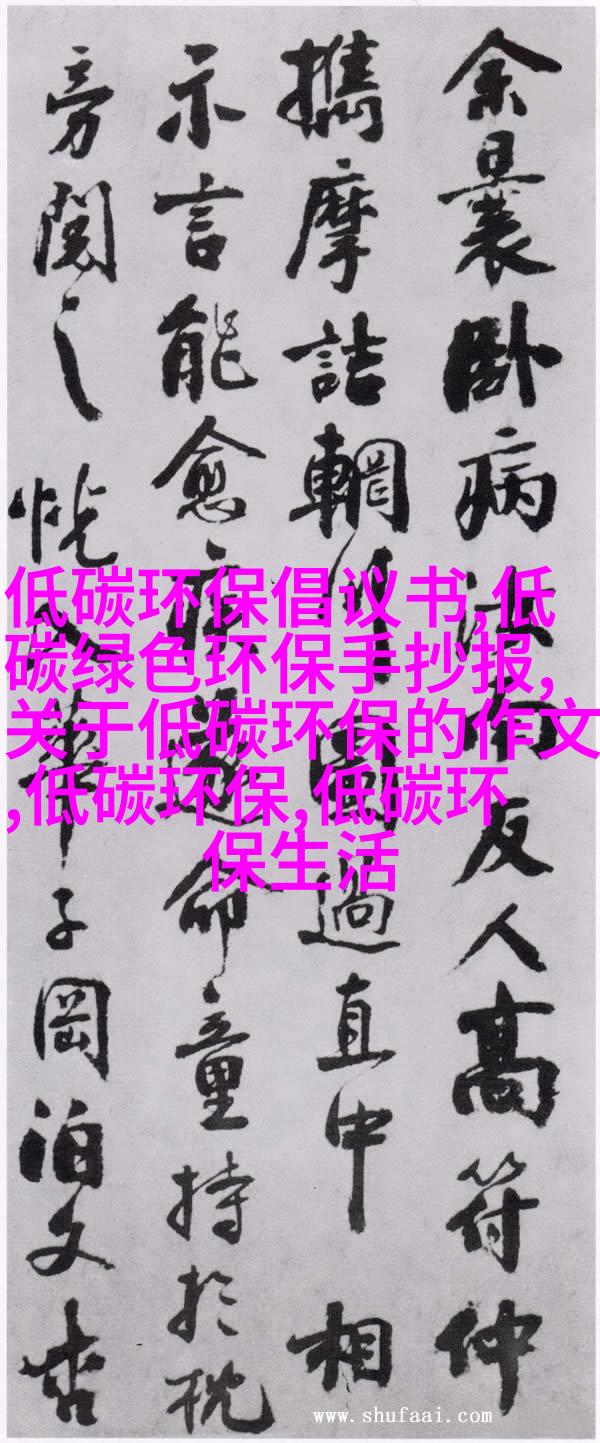 余曩卧病汝南友人高符仲
攜摩詰輞川圖過直中相
示言能愈疾遂命童持於枕
旁閱之恍入華子岡泊文杏
低碳环保倡议书,低
碳绿色环保手抄报,
关于低碳环保的作文
,低碳环保,低碳环
保生活
www.shufaai.com